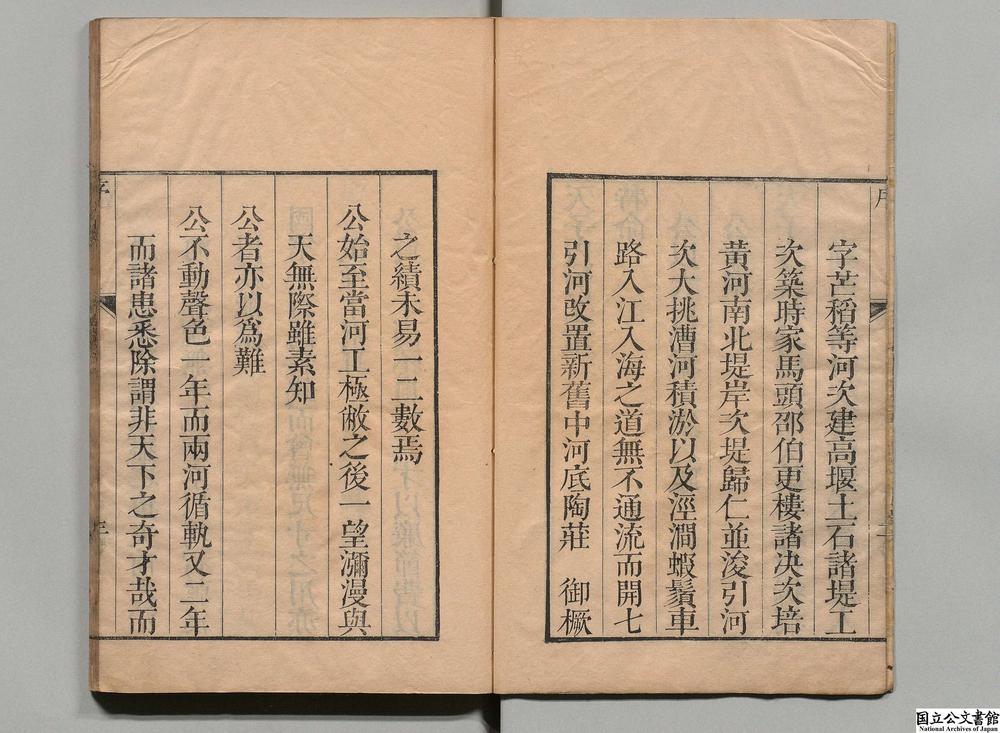 序
字芒稻等河次建高堰土石諸堤工
次築時家馬頭邵伯更樓諸决次培
黃河南北堤岸次堤歸仁並浚引河
次大挑漕河積淤以及涇澗蝦鬚車
路入江入海之道無不通流而開七
引河改置新舊中河底陶莊　御橛
之績未易一二數焉
公始至當河工極敝之後一望瀰漫與
天無際雖素知
公者亦以爲難
公不動聲色一年而兩河循軌又二年
而諸患悉除謂非天下之奇才哉而
国立公文書館
National Archives of Japan